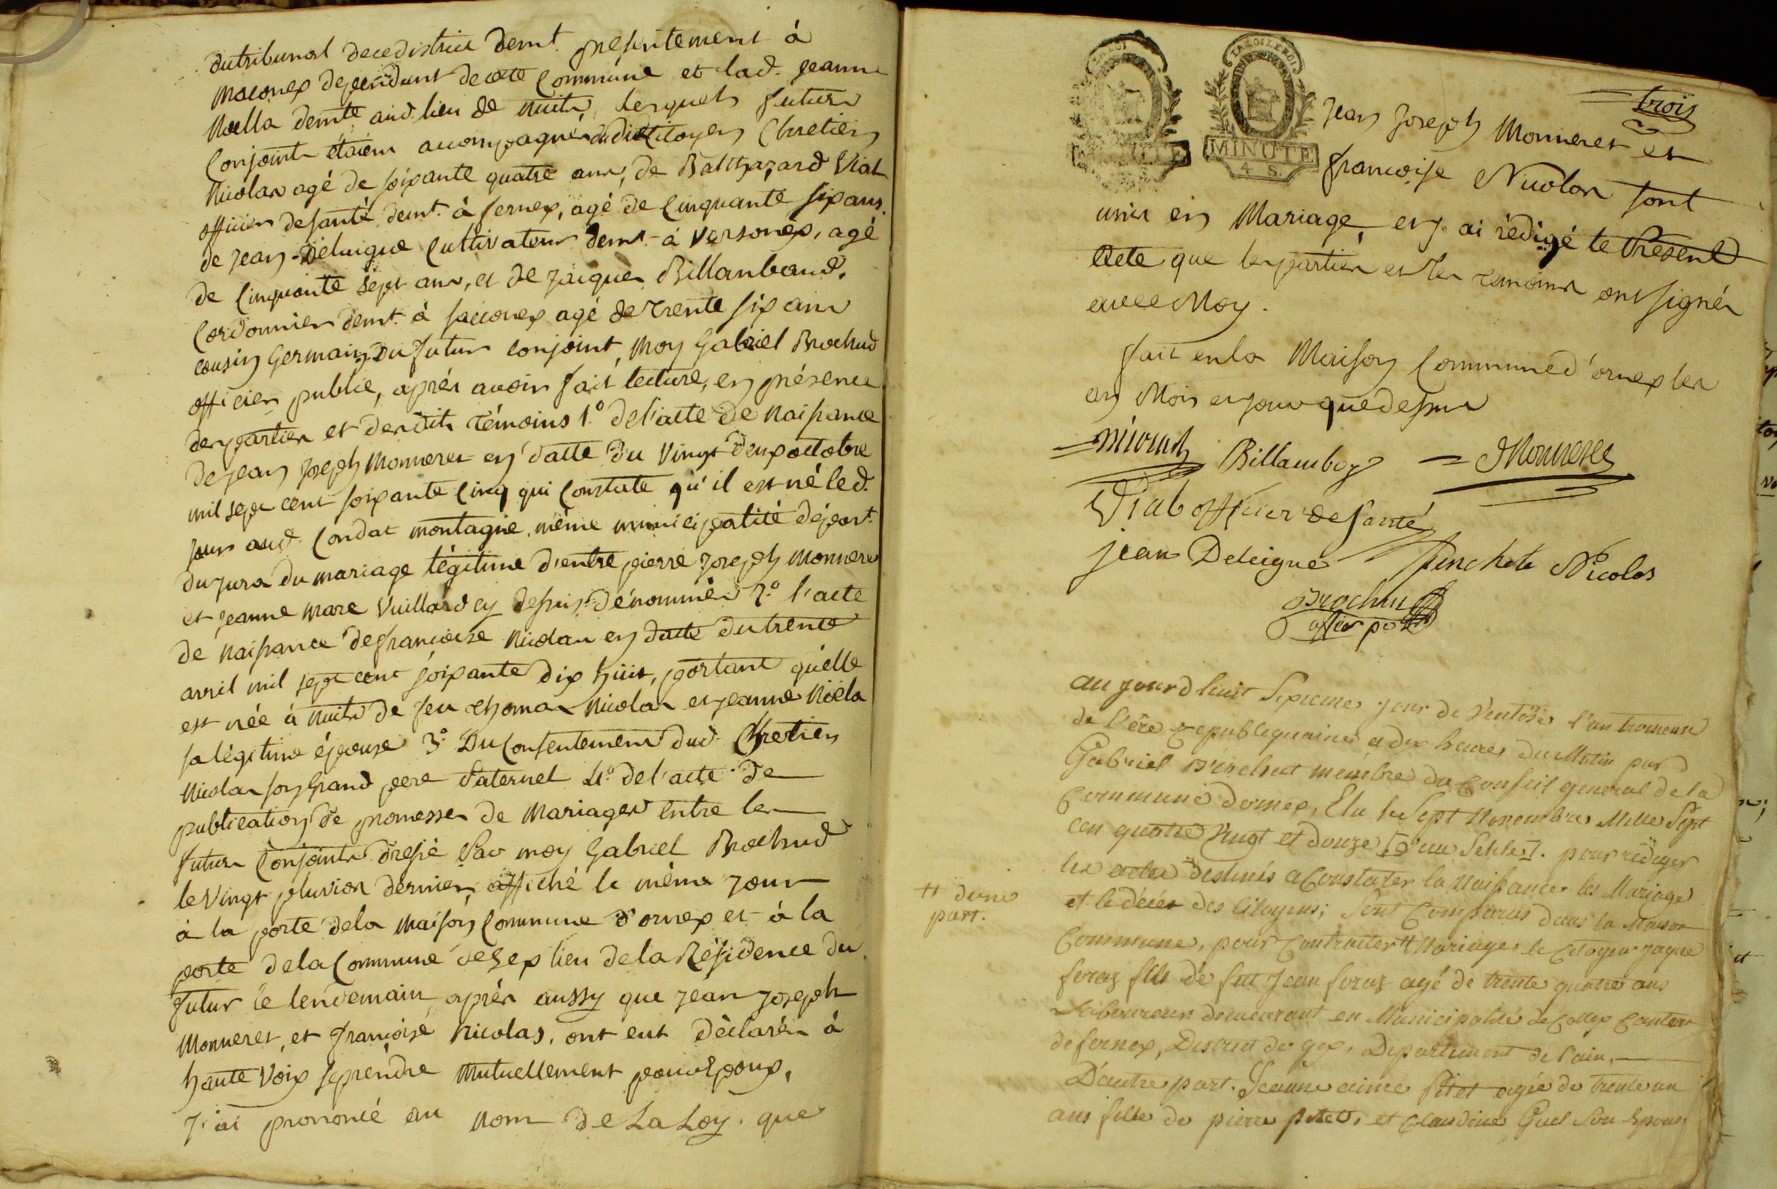 du tribunal de ce district demt. présentement à
Maconex dependant de cette Commune et lad. jeanne
Noella demte. aud. lieu de nuits, lesquels futurs
Conjoints étoient accompagnés de Citoyens Chretien
Nicolas agé de soixante quatre ans, de Balthazard Viat
officier de santé demt. à fernex, agé de Cinquante six ans.
de jean Deluigne Cultivateur demt. à Versonex, agé
de Cinquante sept ans, et de jaques Billambaud,
Cordonnier demt. à sacconex agé de trente six ans
cousin Germain Du futur conjoint, Moy Gabriel Brochud
officier public, après avoir fait lecture, en présence
des parties et desdits témoins 1.° de l'acte de Naissance
de jean joseph Monneret en datte du vingt deux octobre
mil sept cent soixante Cinq qui Constate qu'il est né led.
jour aud. Condat montagne, même municipalité départ.
du jura du mariage légitime d'entre pierre joseph Monneret
et jeanne Mare Vuillard cy dessus dénommés 2.° l'acte
de Naissance de francoise Nicolas en datte du trente
avril mil sept cent soixante dix huit, portant qu'elle
est née à nuits de feu thomas Nicolas et jeanne Noëla
sa légitime épouse 3.° Du Consentement dud. Chretien
Nicolas son Grand pere Paternel 4.° de l'acte de
publication de promesses de Mariages entre les
futurs Conjoints dressé Par moy Gabriel Brochud
le Vingt pluviose dernier affiché le même jour
à la porte de la Maison Commune d'ornex et à la
porte de la Commune de Gex lieu de la Résidence du
futur le lendemain après aussy que jean joseph
Monneret, et françoise Nicolas, ont eut Déclarés à
haute Voix se prendre Mutuellement pour Epoux,
j'ai prononcé au nom de La Loy, que
trois
MINUTE
MINUTE
4 S.
jean joseph Monneret et
francoise Nicolas sont
unis en Mariage et j'ai rédigé le Présent
acte que les parties et les temoins ont signés
avec Moy.
fait en la Maison Commune d'ornex les
an Mois et jour que dessus
Billamboz Monneret
Viat officier de santé
jean Deleigne Nicolas
Brochu
offier pub
au jourd huit Sixieme jour de Ventose l'an troisieme
de l'ère republiquaine a dix heures du Matin par
Gabriel Brochut membre du Conseil general de la
Commune dornex, Elu le Sept Novembre Mille Sept
cen quatre Vingt et douze pour rédiger
les actes destinés a Constater la Naissance les Mariage
et le décés des Citoyens; Sont Comparus dans la Maison
Commune, pour Contracter # Mariage le Citoyen jaque
# dune
part.
foraz fils de feu jean foraz agé de trente quatre ans
Laboureur demeurant en Municipalité de Collex Canton
de fernex, District de gex, Departement de l'ain,
D'autre part. Jeanne aimée Pitet agée de trente un
ans fille de pierre pitet, et Claudine Guel Son Epouse